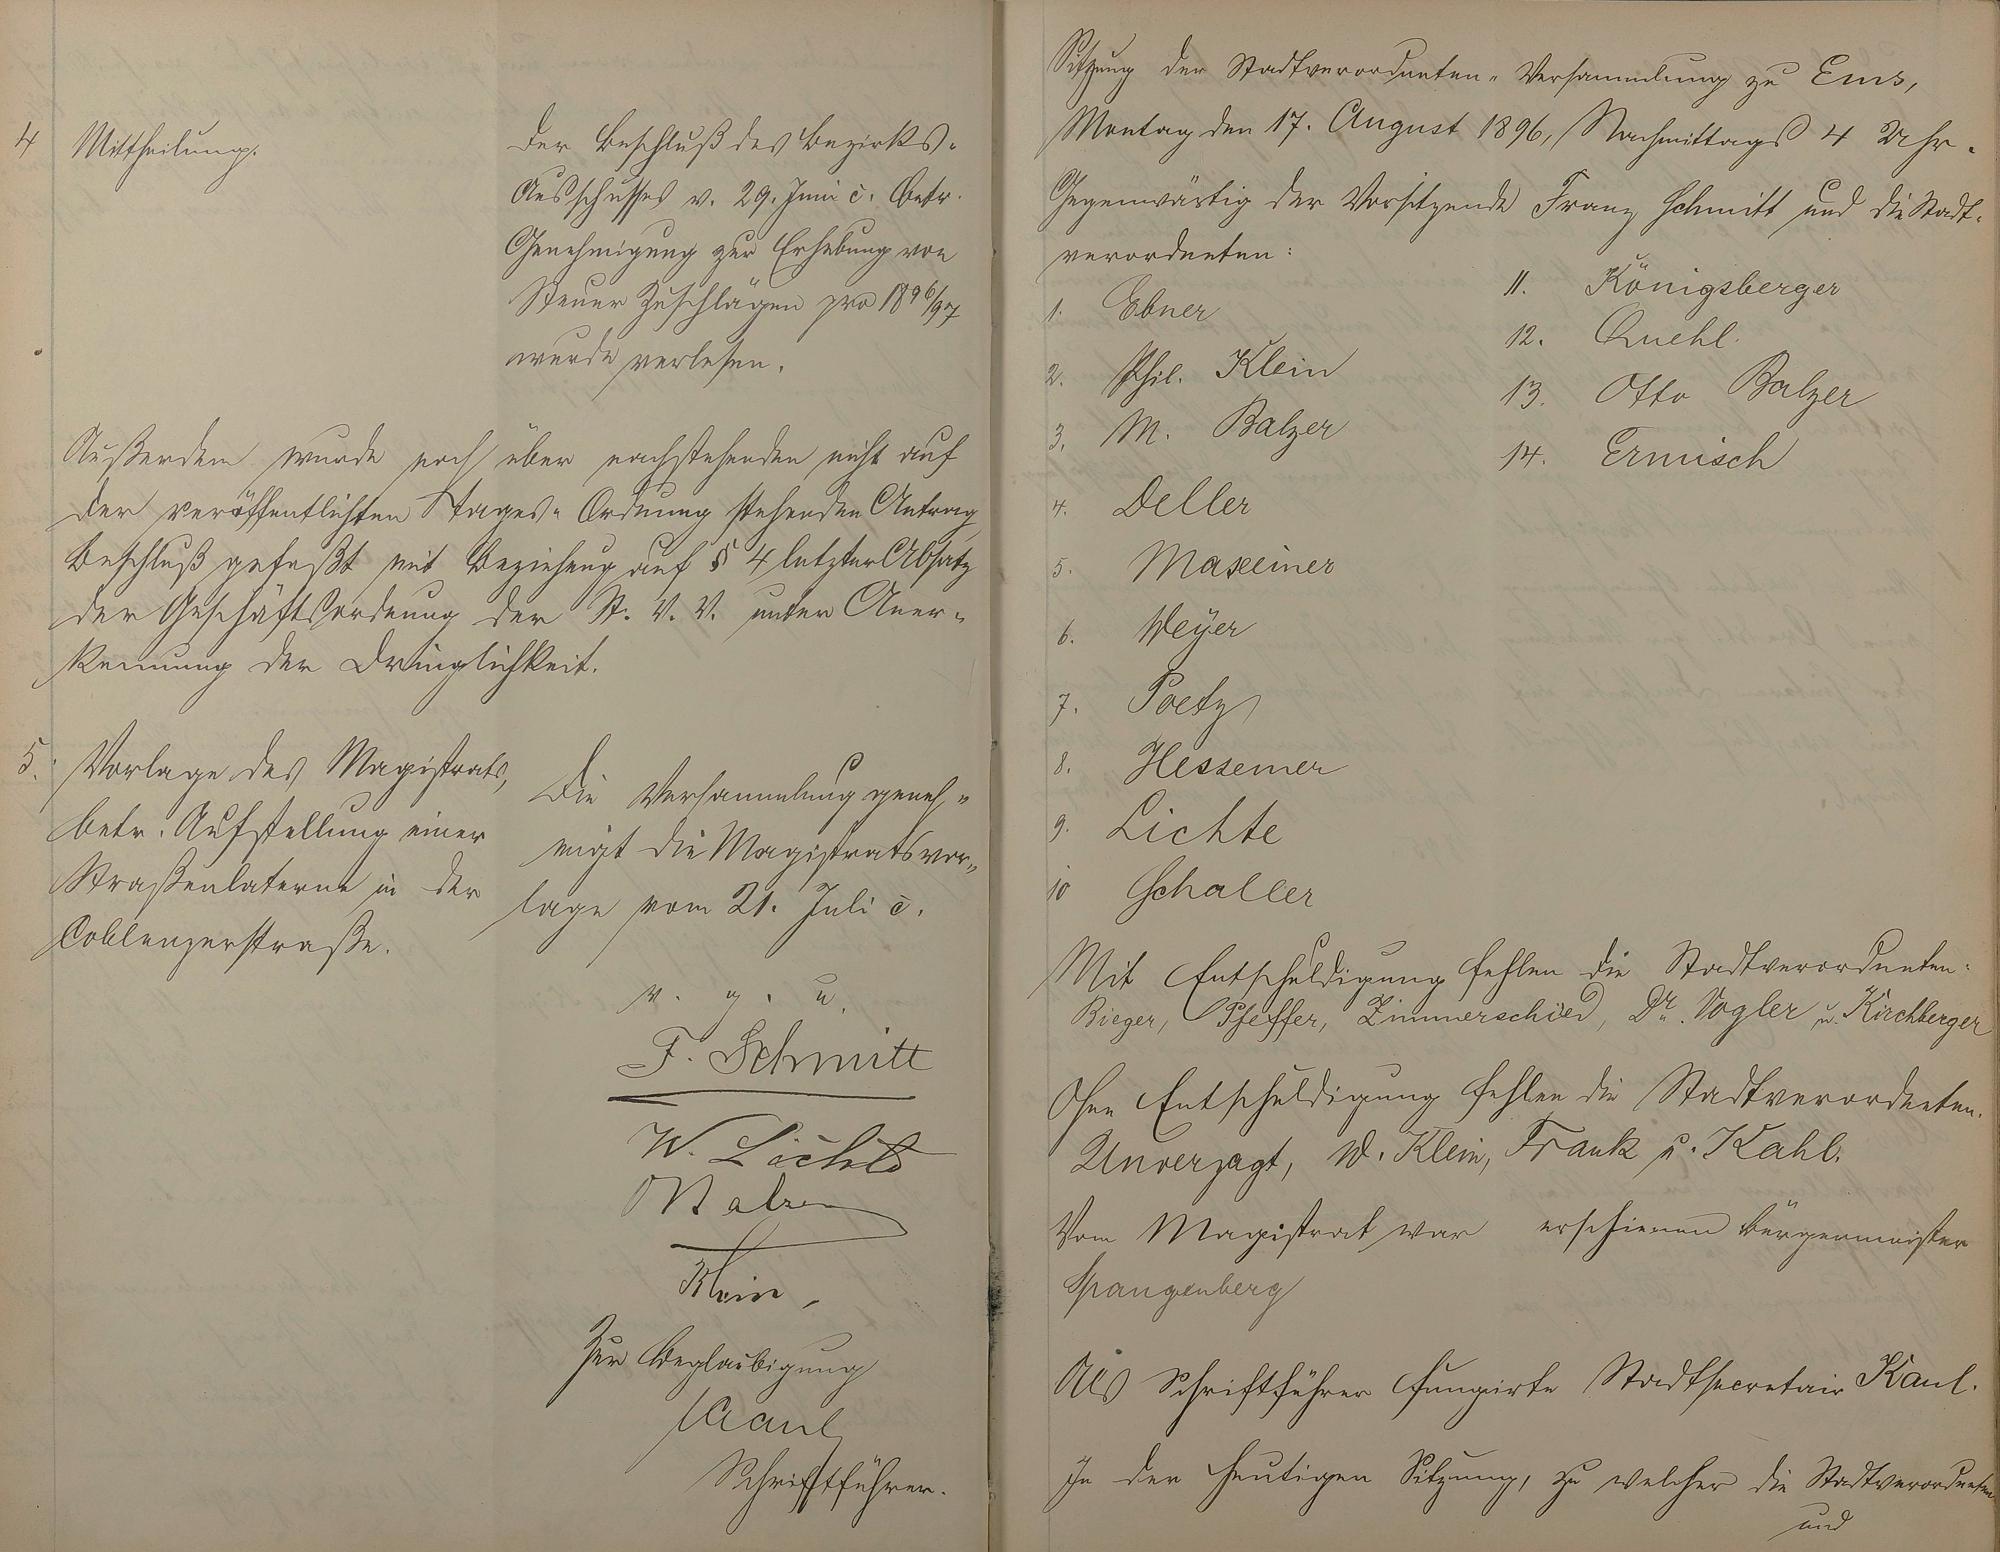 4 Mittheilung.
Der Beschluß des Bezirks-
Ausschusses v. 29. Juni c. betr.
Genehmigung zur Erhebung von
Steuer Zuschlägen pro 1896/97
wurde verlesen.
Außerdem wurde noch über nachstehenden nicht auf
der veröffentlichten Tages-Ordnung stehenden Antrag
Beschluß gefaßt mit Beziehung auf § 4 letzter Absatz
der Geschäftsordnung der St. V. V. unter Aner-
kennung der Dringlichkeit.
5. Vorlage des Magistrats,
betr. Aufstellung einer
Straßenlaterne in der
Coblenzerstraße.
Die Versammlung geneh-
migt die Magistratsvor-
lage vom 21. Juli c.
v. g. u.
F. Schmitt
W. Lichte
M Balzer
Klein,
Zur Beglaubigung
Kaul
Schriftführer.
Sitzung der Stadtverordneten-Versammlung zu Ems,
Montag den 17. August 1896, Nachmittags 4 Uhr.
Gegenwärtig der Vorsitzende Franz Schmitt und die Stadt-
verordneten:
1. Ebner
2. Phil. Klein
3. M. Balzer
4. Deller
5. Maxeiner
6. Weyer
7. Poetz
8. Hessemer
9. Lichte
10 Schaller
11. Königsberger
12. Quehl.
13. Otto Balzer
14. Ermisch
Mit Entschuldigung fehlen die Stadtverordneten:
Rieger, Pfeffer, Zimmerschied, Dr. Vogler u. Kirchberger
Ohne Entschuldigung fehlen die Stadtverordneten.
Unverzagt, W. Klein, Frank u. Kahl.
Vom Magistrat war erschienen Bürgermeister
Spangenberg
Als Schriftführer fungirte Stadtsecretair Kaul.
In der heutigen Sitzung, zu welcher die Stadtverordneten
und